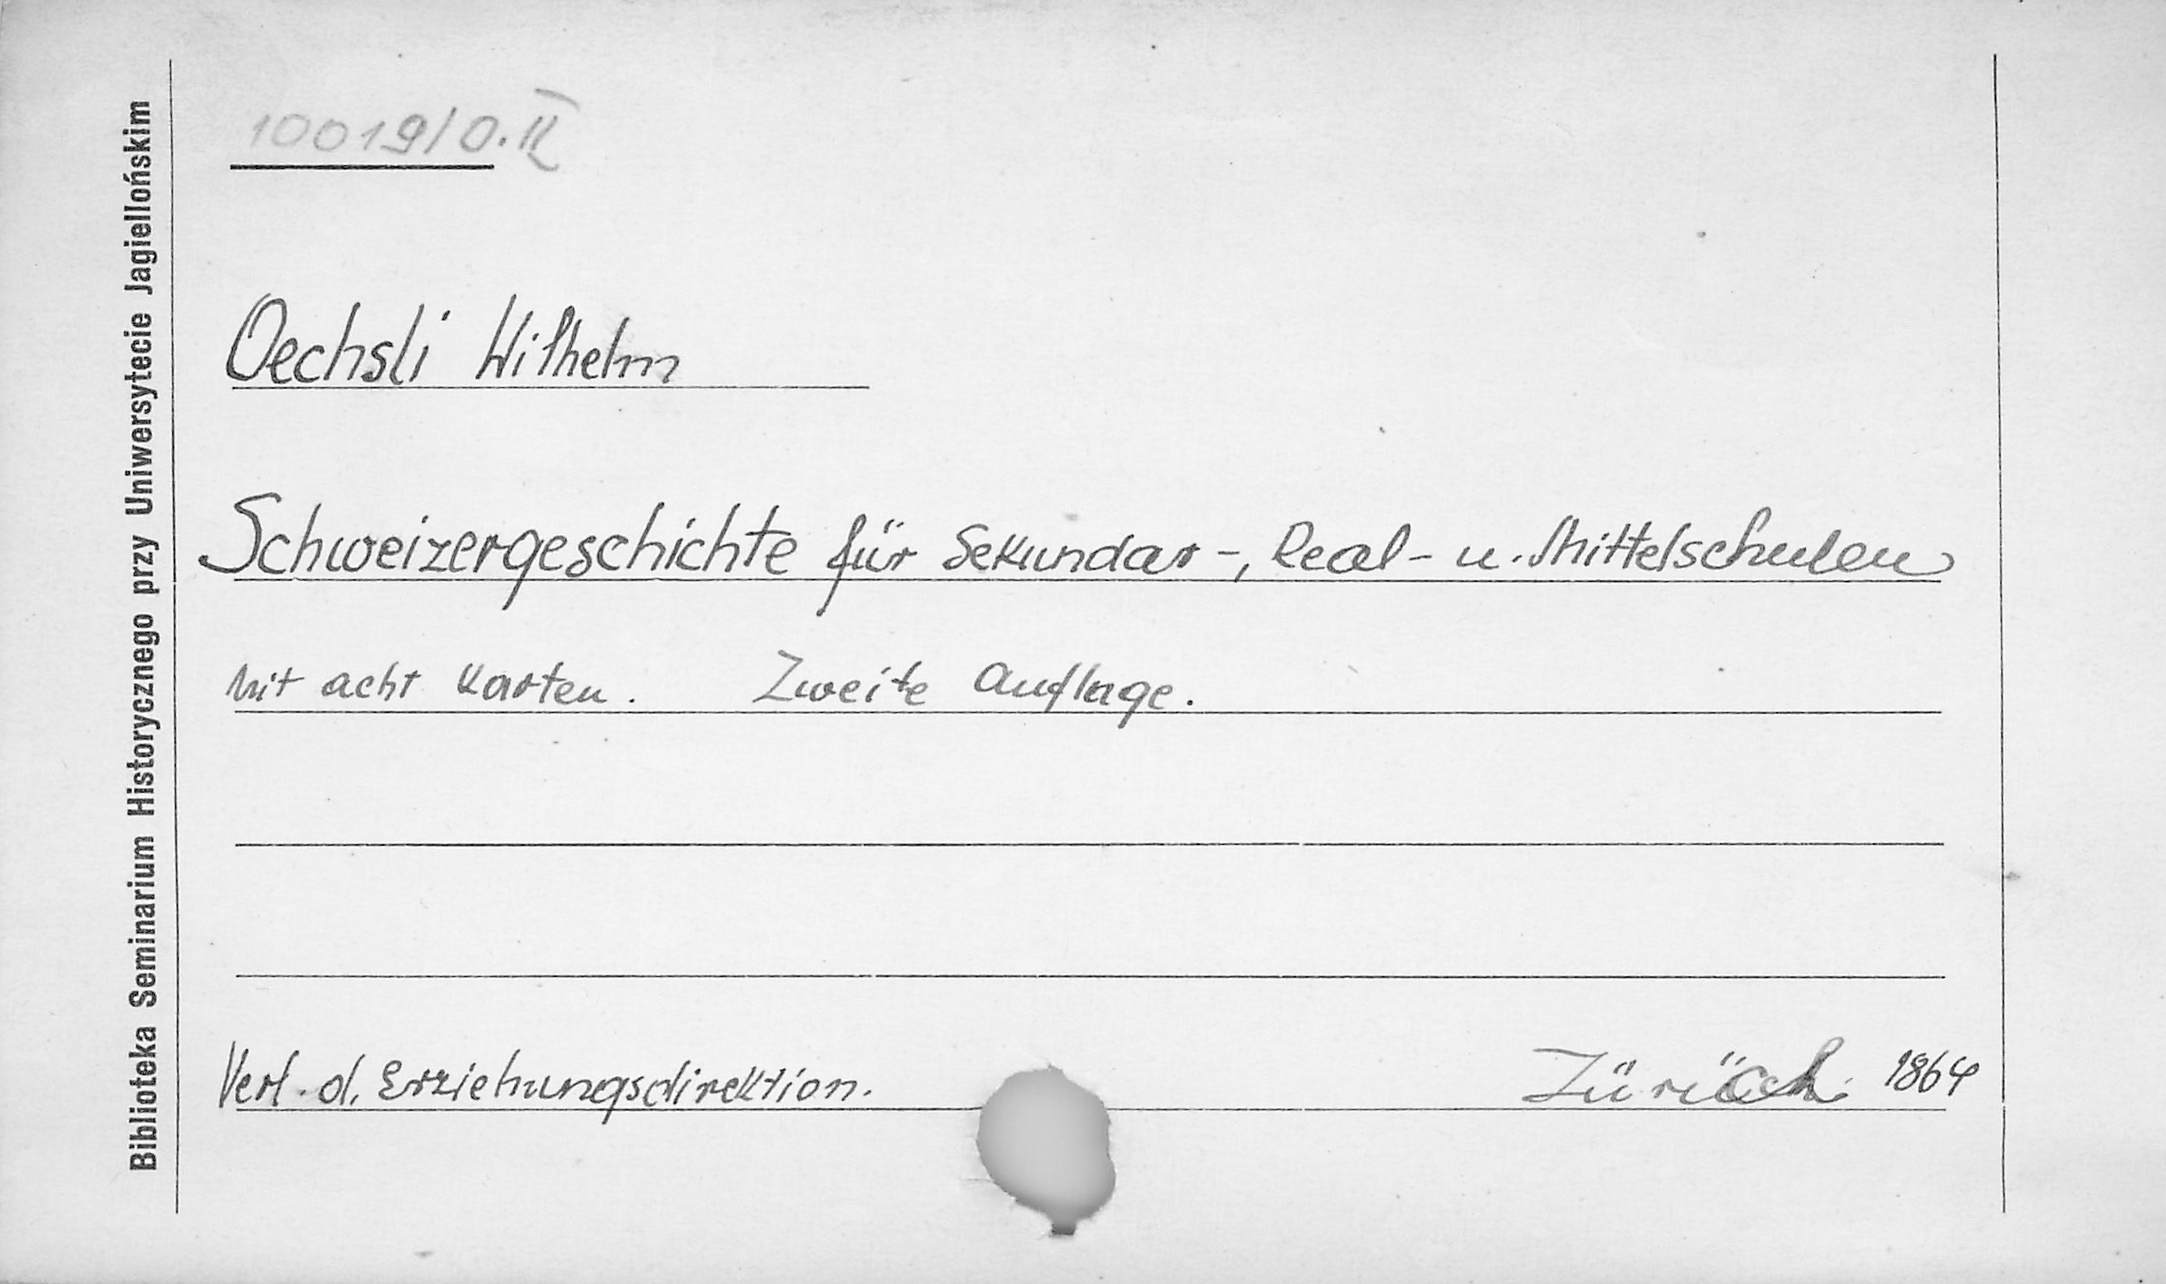 10019/O.II
Oechsli Wilhelm
Schweizergeschichte für Sekundar-, Real- u. Mittelschulen
Mit acht Karten. Zweite Auflage.
Verl. d. Erziehungsdirektion. Zürich 1864
Biblioteka Seminarium Historycznego przy Uniwersytecie Jagiellońskim